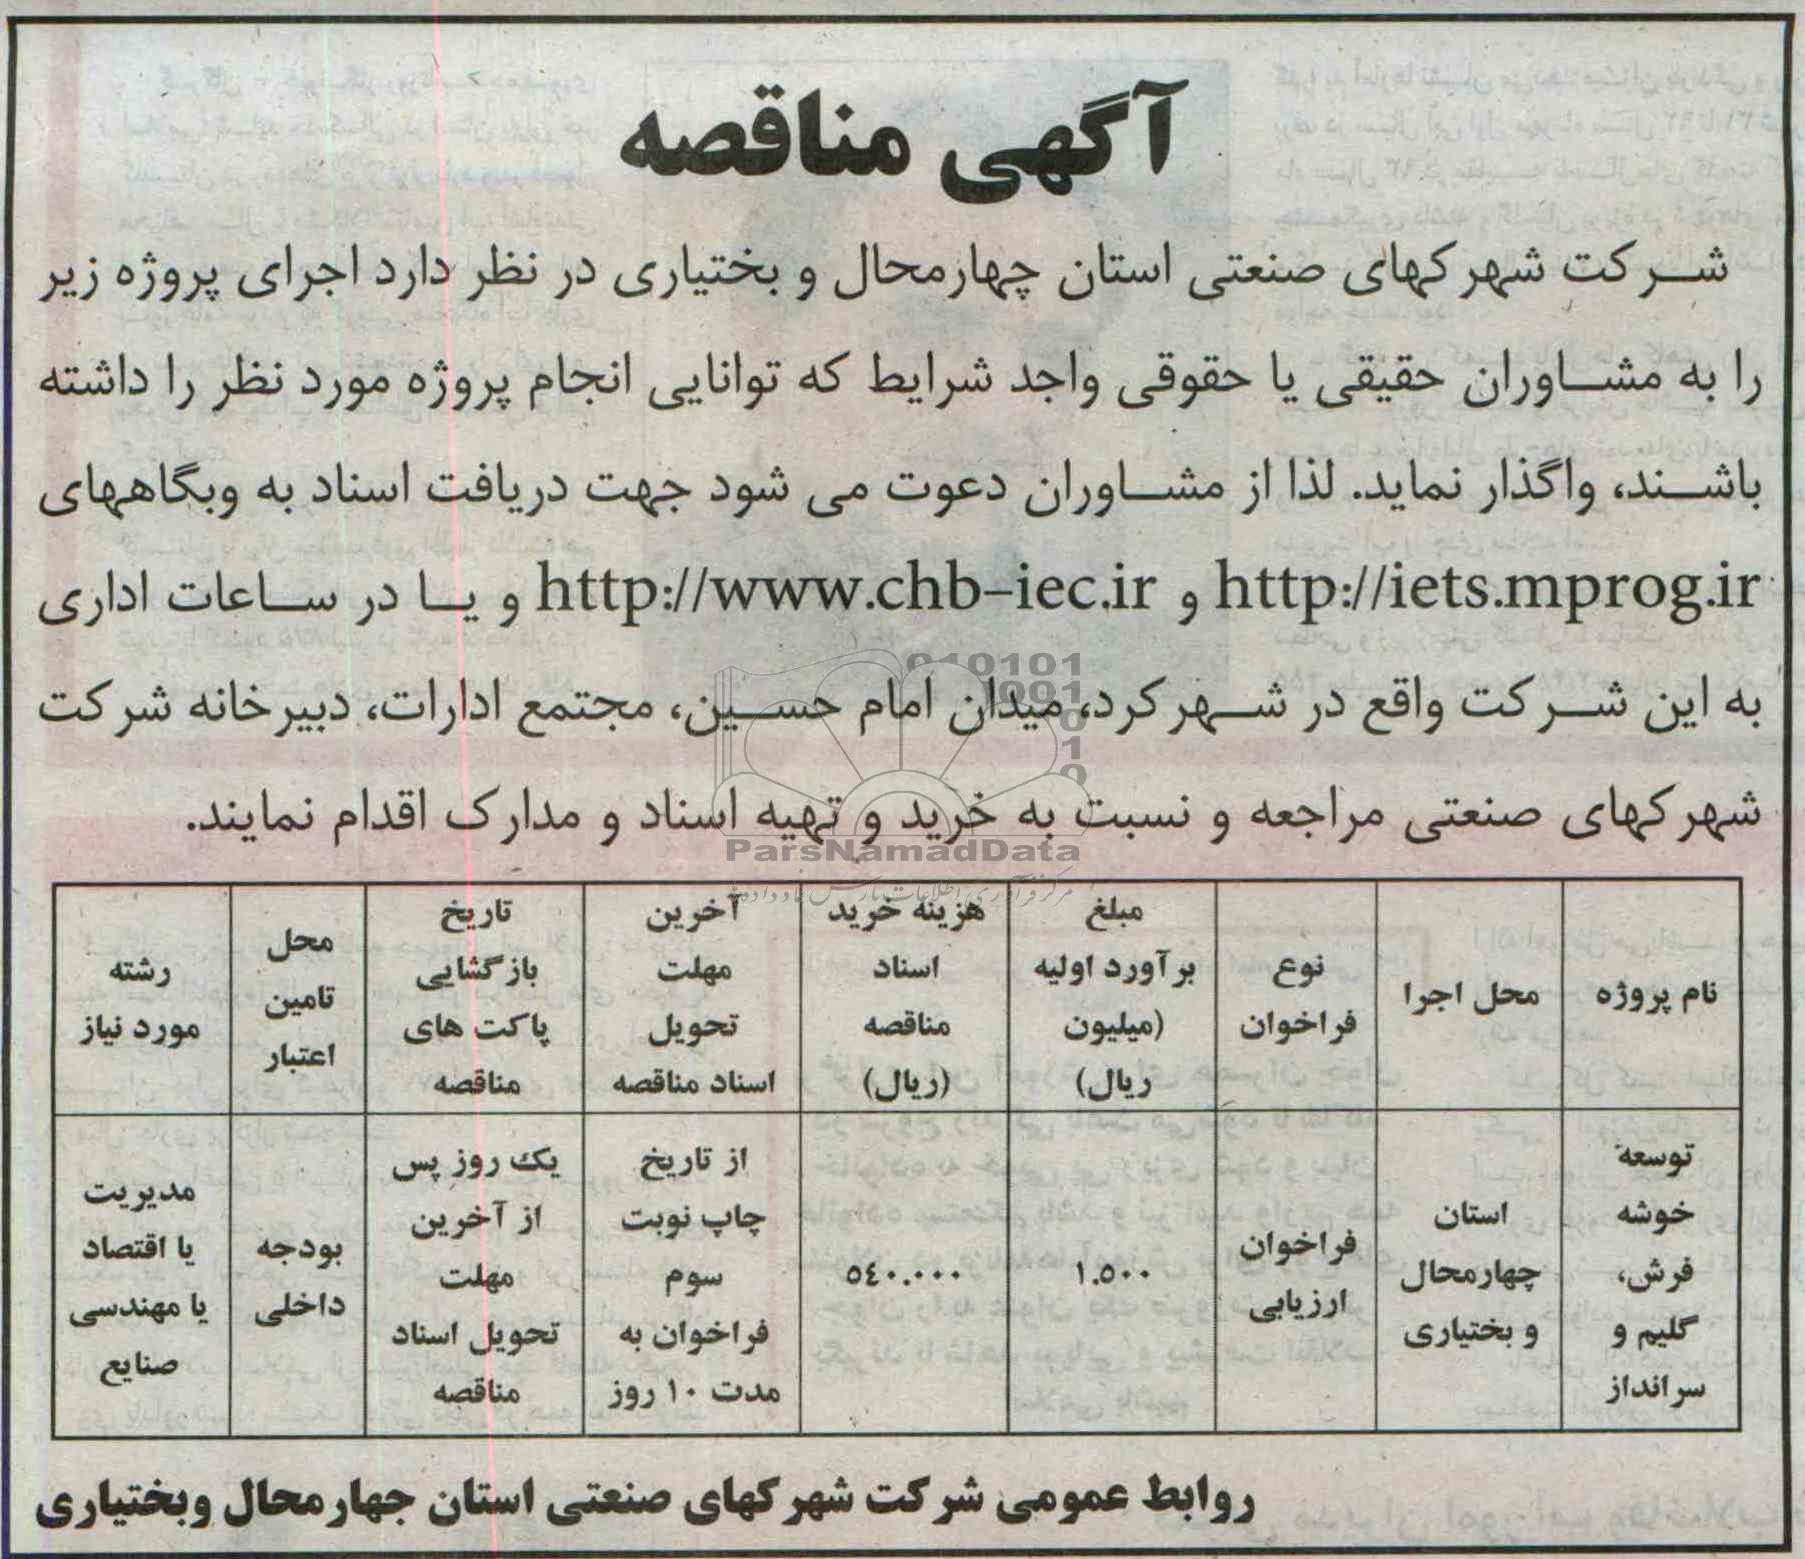 آگهی مناقصه
شرکت شهرکهای صنعتی استان چهارمحال و بختیاری در نظر دارد اجرای پروژه زیر
را به مشاوران حقیقی یا حقوقی واجد شرایط که توانایی انجام پروژه مورد نظر را داشته
باشند، واگذار نماید. لذا از مشاوران دعوت می شود جهت دریافت اسناد به وبگاههای
http://iets.mprog.ir و http://www.chb-iec.ir و یا در ساعات اداری
به این شرکت واقع در شهرکرد، میدان امام حسین، مجتمع ادارات، دبیرخانه شرکت
شهرکهای صنعتی مراجعه و نسبت به خرید و تهیه اسناد و مدارک اقدام نمایند.
ParsNamadData
نام پروژه
محل اجرا
نوع
فراخوان
مبلغ
برآورد اولیه
(میلیون
ریال)
هزینه خرید
اسناد
مناقصه
(ریال)
آخرین
مهلت
تحویل
اسناد مناقصه
تاریخ
بازگشایی
پاکت های
مناقصه
محل
تامین
اعتبار
رشته
مورد نیاز
توسعه
خوشه
فرش،
گلیم و
سرانداز
استان
چهارمحال
و بختیاری
فراخوان
ارزیابی
۱.۵۰۰
۵۴۰.۰۰۰
از تاریخ
چاپ نوبت
سوم
فراخوان به
مدت ۱۰ روز
یک روز پس
از آخرین
مهلت
تحویل اسناد
مناقصه
بودجه
داخلی
مدیریت
یا اقتصاد
یا مهندسی
صنایع
روابط عمومی شرکت شهرکهای صنعتی استان چهارمحال وبختیاری